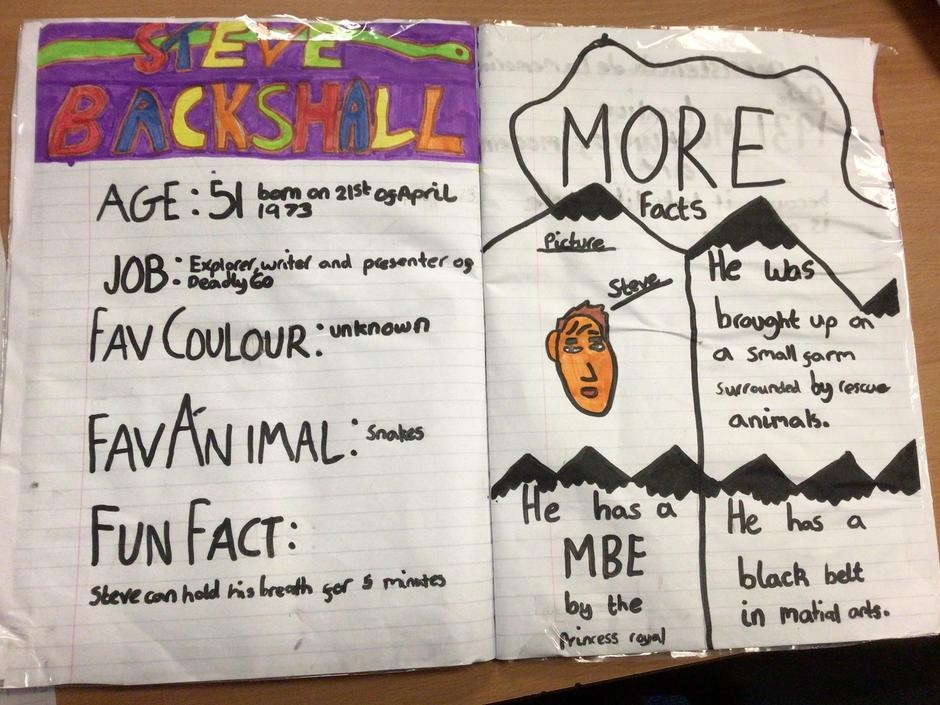 STEVE
BACKSHALL
AGE: 51 born on 21st of April
1973
JOB: Explorer, writer and presenter of
Deadly 60
FAV COULOUR: unknown
FAV ANIMAL: Snakes
FUN FACT:
Steve can hold his breath for 5 minutes
MORE
Facts
Picture
Steve
He was
brought up on
a small farm
surrounded by rescue
animals.
He has a
MBE
by the
Princess royal
He has a
black belt
in matial arts.